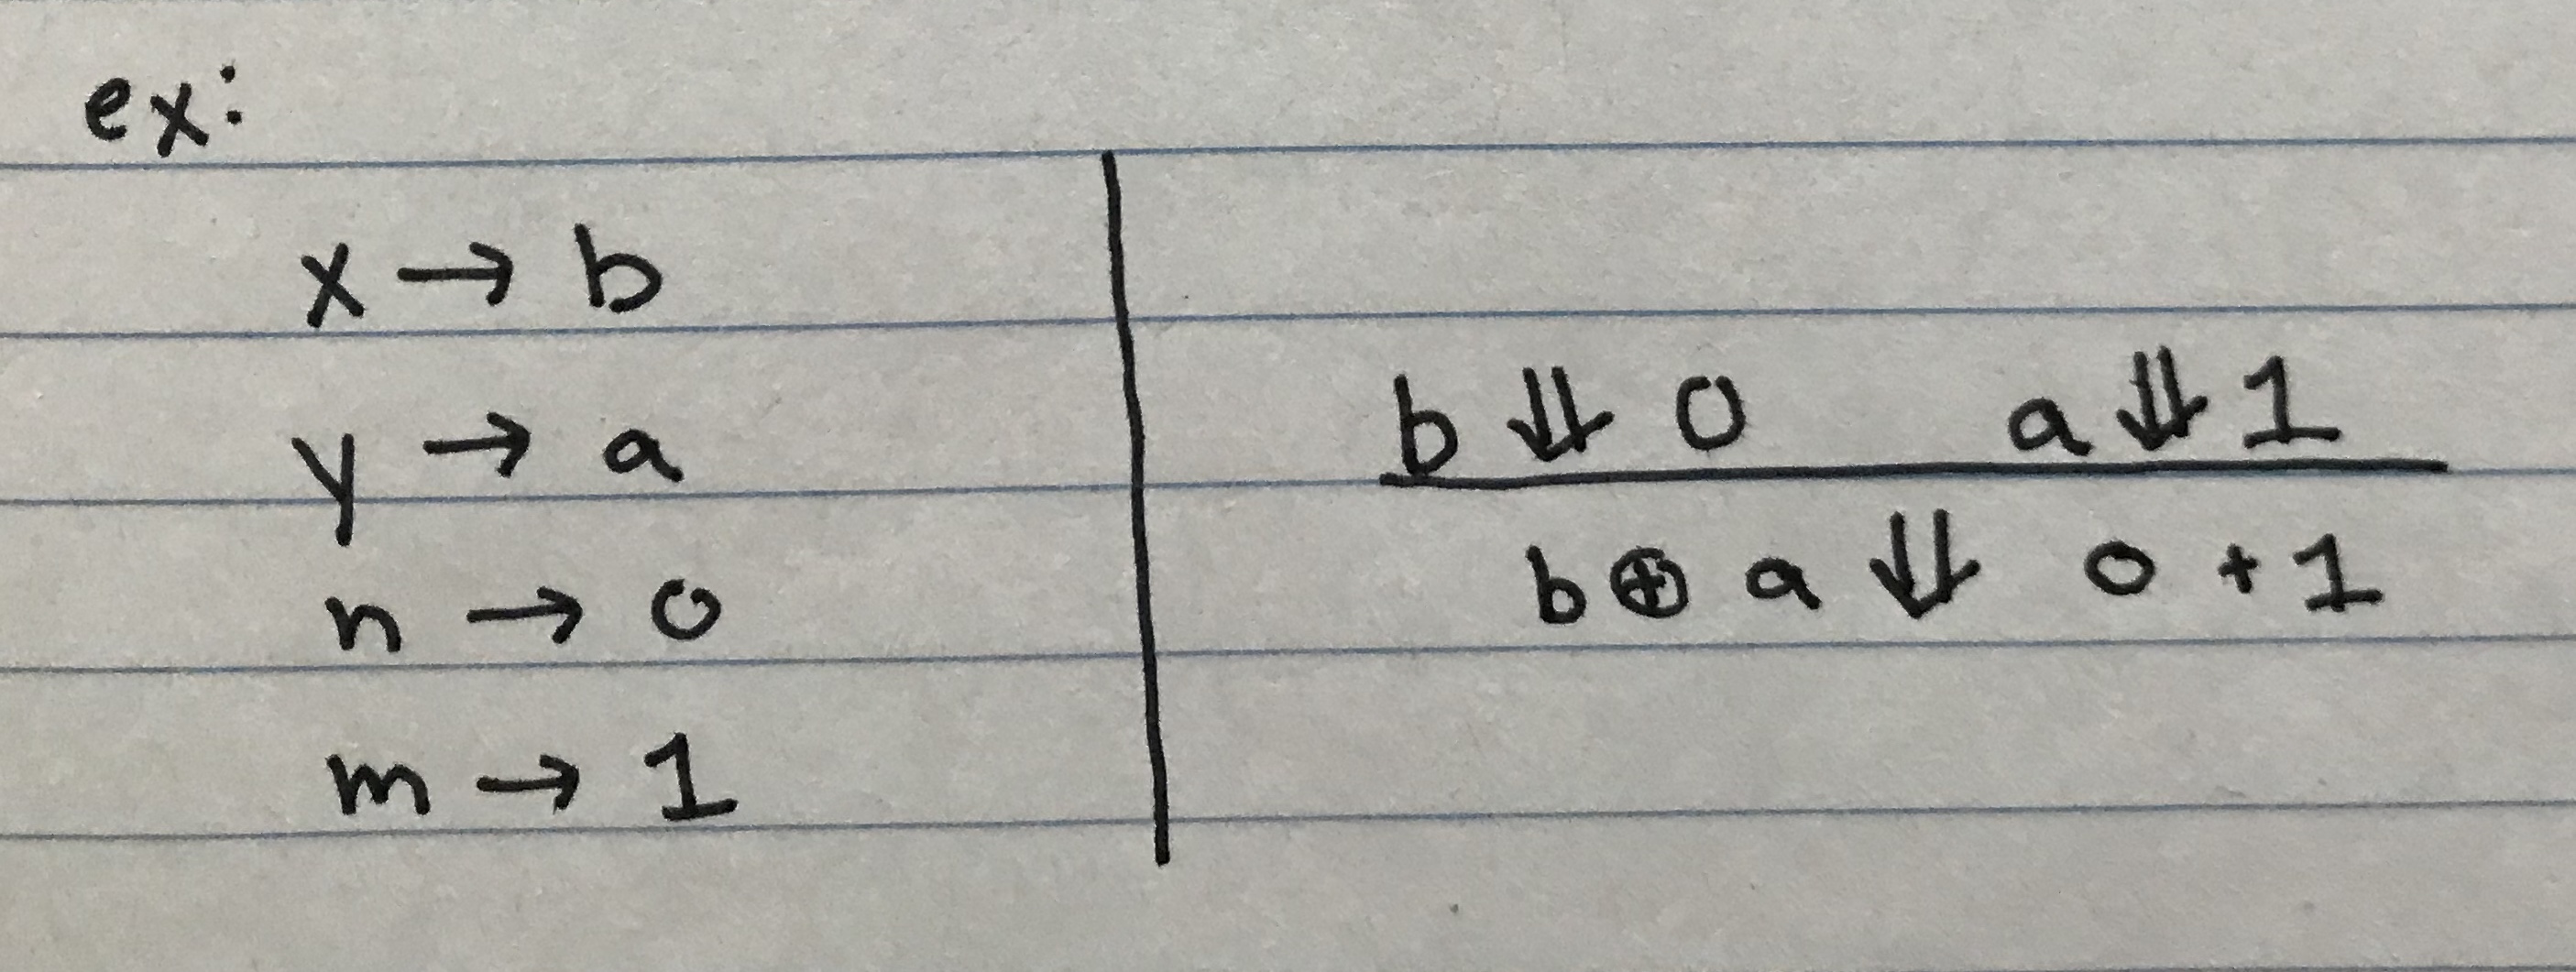 ex:
x → b
y → a
n → 0
m → 1
b ⇓ 0 a ⇓ 1
b ⊕ a ⇓ 0 + 1